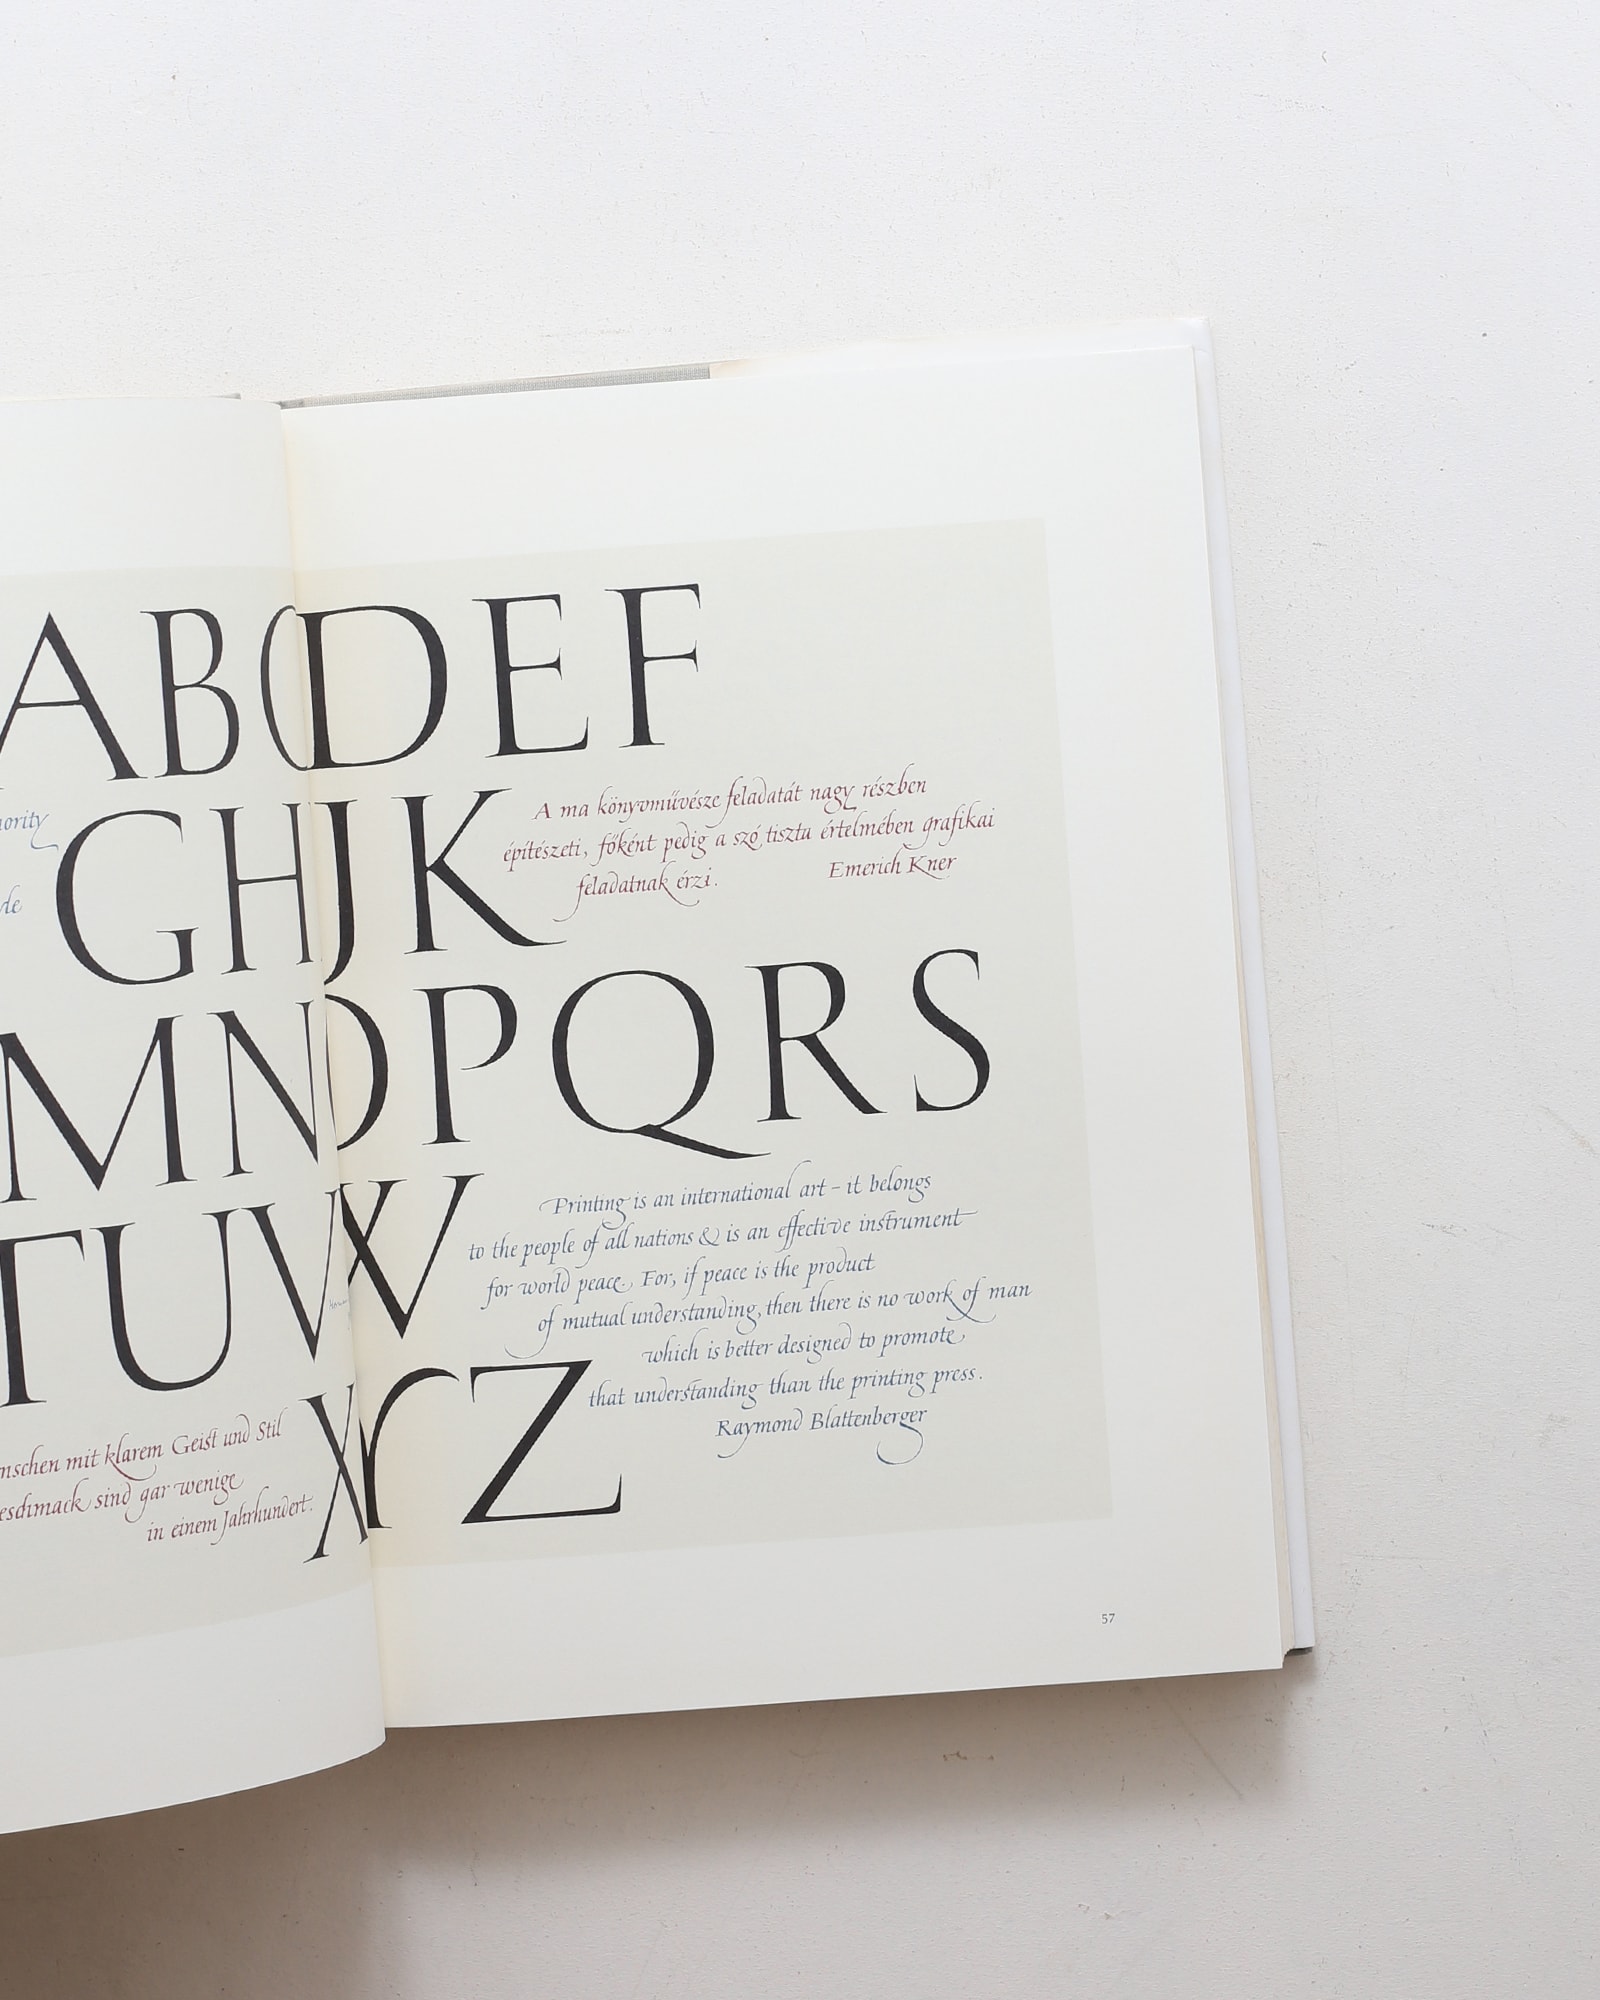 ABCDEF
A ma könyvművésze feladatát nagy részben
építészeti, főként pedig a szó tiszta értelmében grafikai
feladatnak érzi. Emerich Kner
GHJK
MNOPQRS
TUVW
Printing is an international art – it belongs
to the people of all nations & is an effective instrument
for world peace. For, if peace is the product
of mutual understanding, then there is no work of man
which is better designed to promote
that understanding than the printing press.
Raymond Blattenberger
XYZ
mit klarem Geist und Stil
sind gar wenige
in einem Jahrhundert.
57